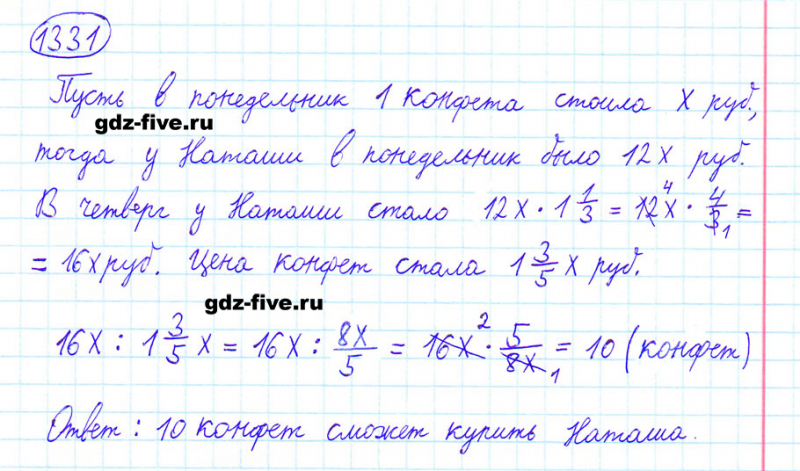 1331
Пусть в понедельник 1 конфета стоила х руб,
gdz-five.ru
тогда у Наташи в понедельник было 12х руб.
В четверг у Наташи стало 12х · 1 1/3 = 12х 4 · 4/3 1 =
= 16х руб. Цена конфет стала 1 3/5 х руб.
gdz-five.ru
16х : 1 3/5 х = 16х : 8х/5 = 16х 2 · 5/8х 1 = 10 (конфет)
Ответ: 10 конфет сможет купить Наташа.